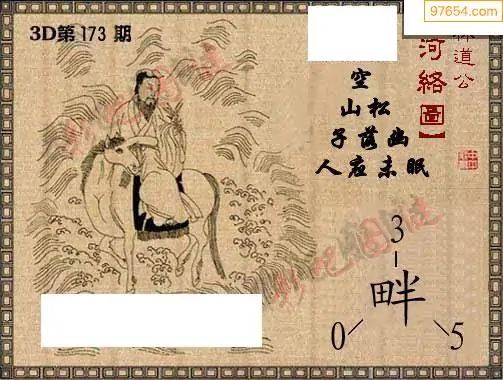 97654.com
3D第173期
道公
河絡圖】
空
山松
子落幽
人应未眠
3
畔
0 5